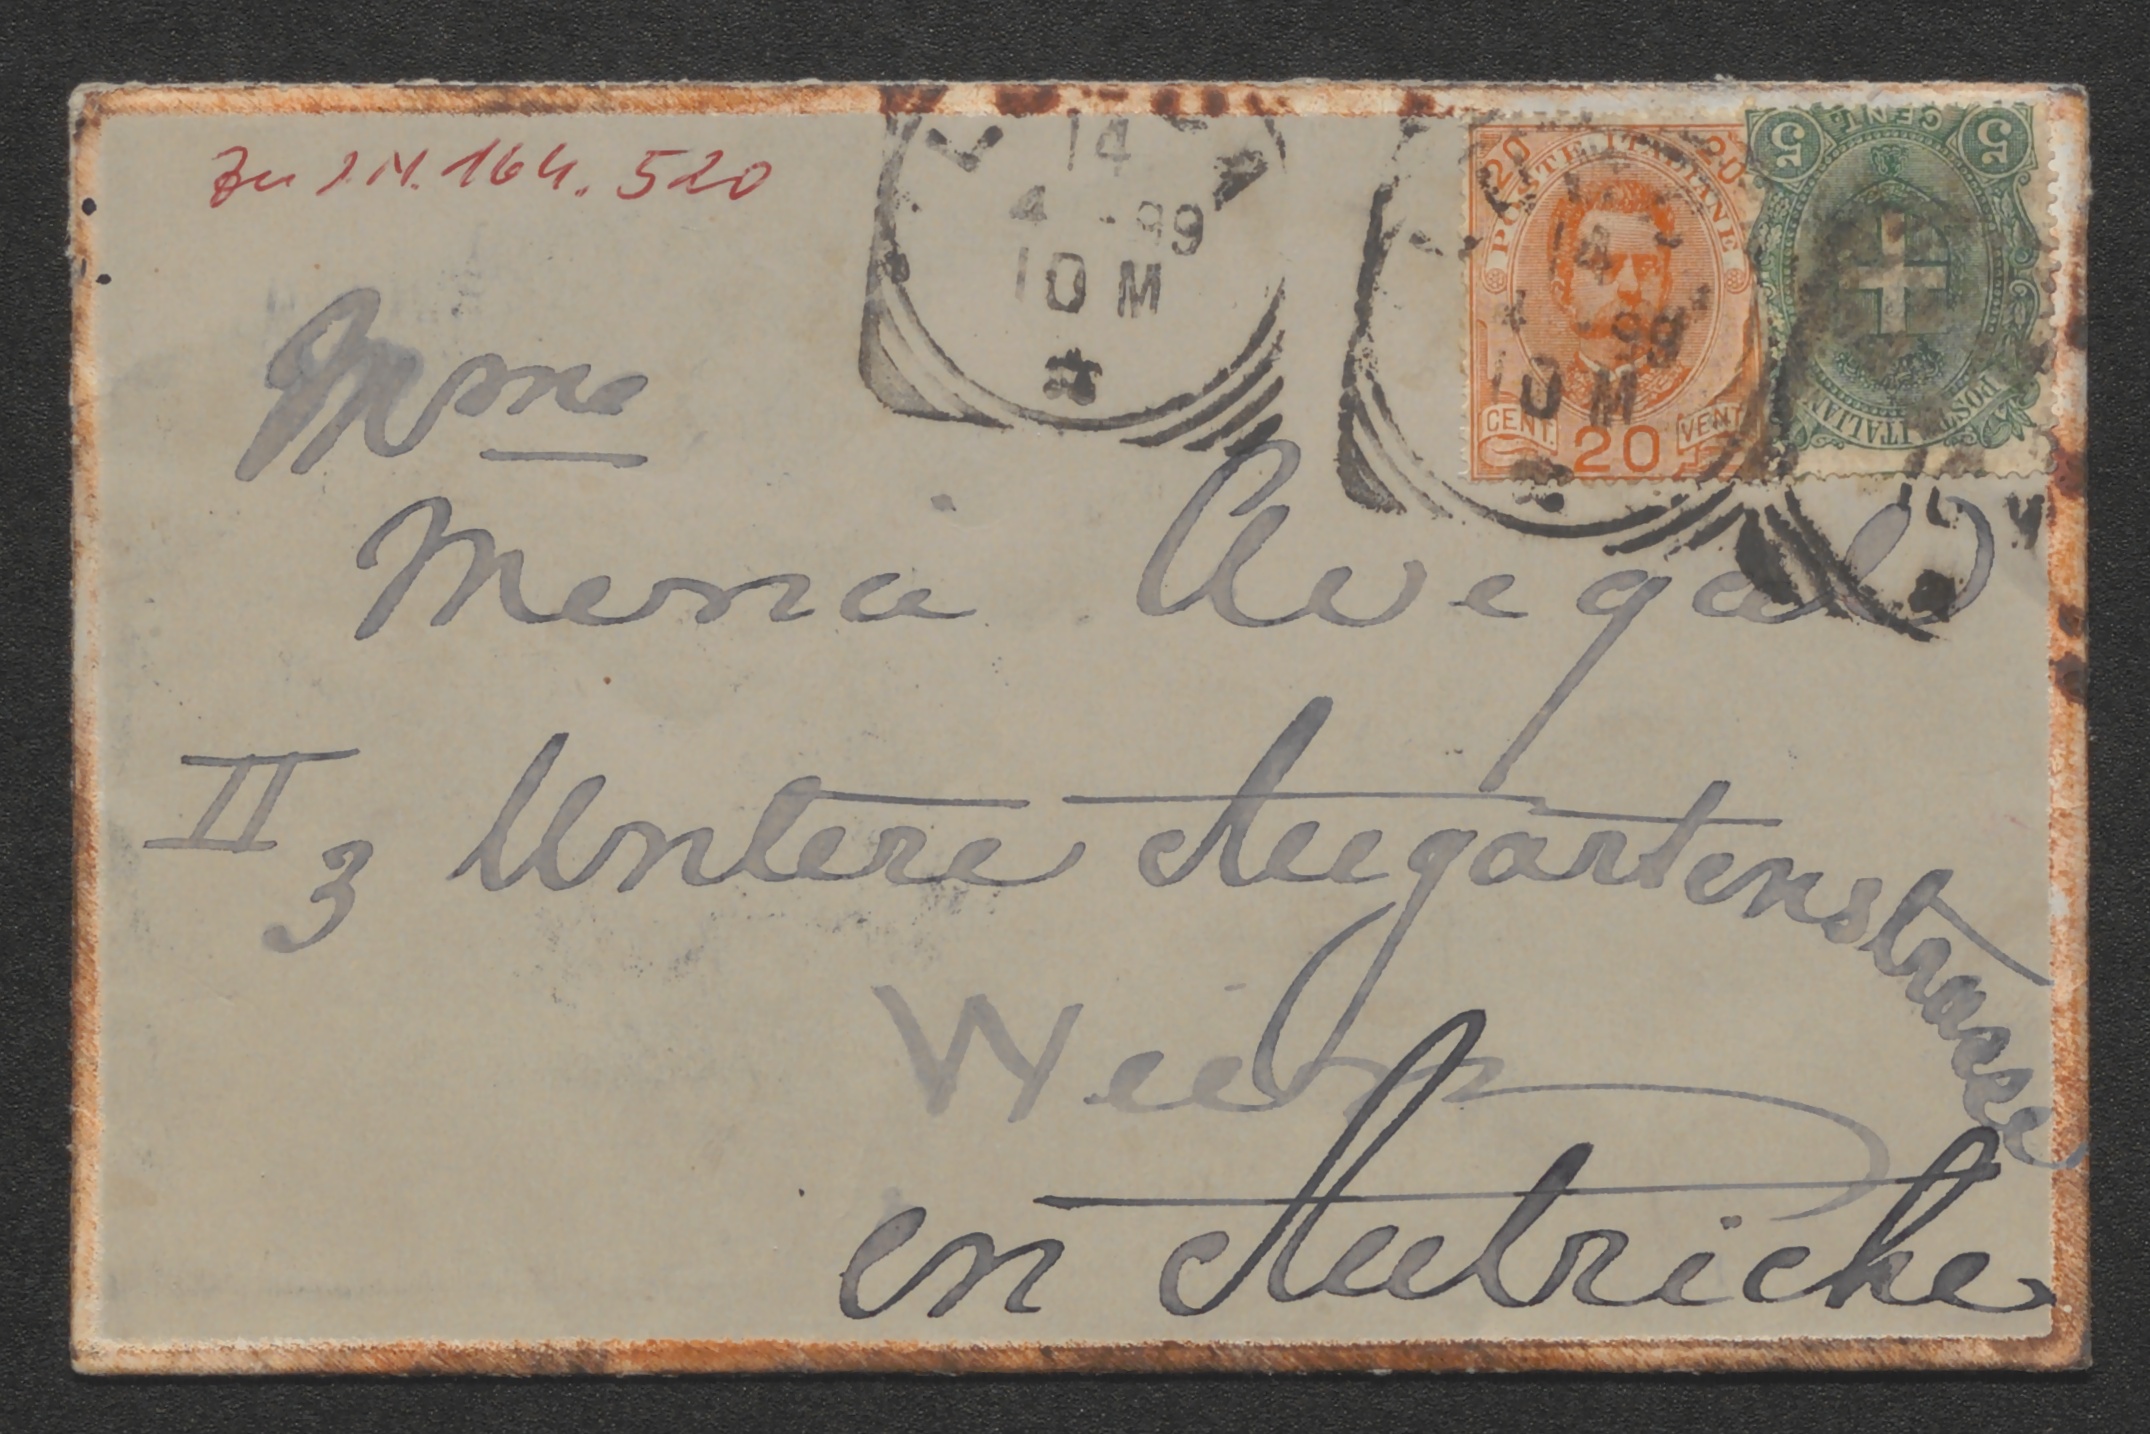 Zu I.N. 164.520
14
4 - 99
10 M
20 POSTE ITALIANE 20
14
4 - 99
10 M
CENT. 20 VENTI
5 CENT. 5
POSTE ITALIANE
Mme
Maria Avegal
II
3 Untere Augartenstrasse
Wien
en Autriche